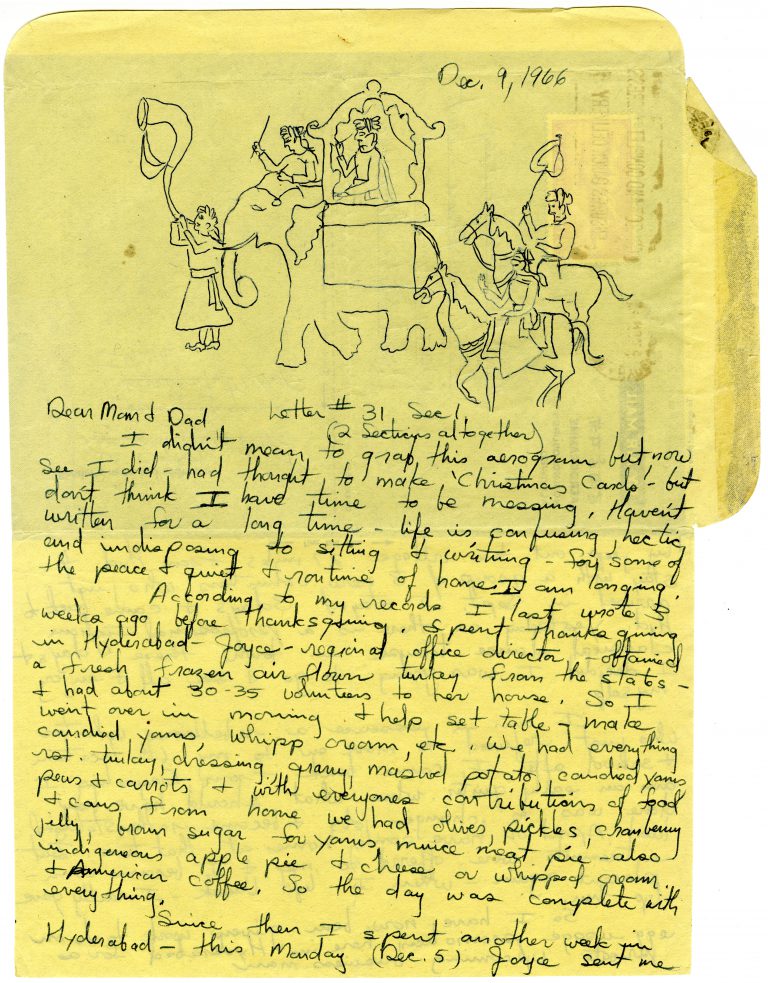 Dec. 9, 1966
Dear Mom & Dad Letter # 31 Sec 1
(2 Sections altogether)
I didn't mean to grap this aerogram but now
see I did - had thought to make 'Christmas Cards' - but
don't think I have time to be messing. Haven't
written for a long time - life is confusing, hectic
and indisposing to sitting & writing - for some of
the peace & quiet & routine of home I am longing.
According to my records I last wrote 3
weeks ago before thanksgiving. Spent thanksgiving
in Hyderabad - Joyce - regional office director - obtained
a fresh frozen air flown turkey from the states -
& had about 30-35 volunteers to her house. So I
went over in morning & help set table - make
candied yams whipp cream, etc. We had everything
turkey, dressing, gravy, mashed potato, candied yams
peas & carrots & with everyones contributions of food
& cans from home we had olives, pickles, cranberry
jelly, brown sugar for yams, mince meat pie - also
indigeneous apple pie & cheese or whipped cream.
& American coffee. So the day was complete with
everything.
Since then I spent another week in
Hyderabad - this Monday (Dec. 5) Joyce sent me